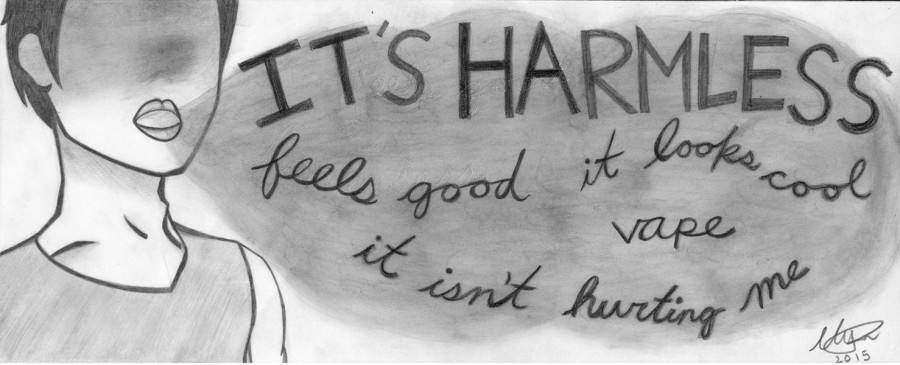 IT'S HARMLESS
feels good it looks cool
vape
it isn't hurting me
2015